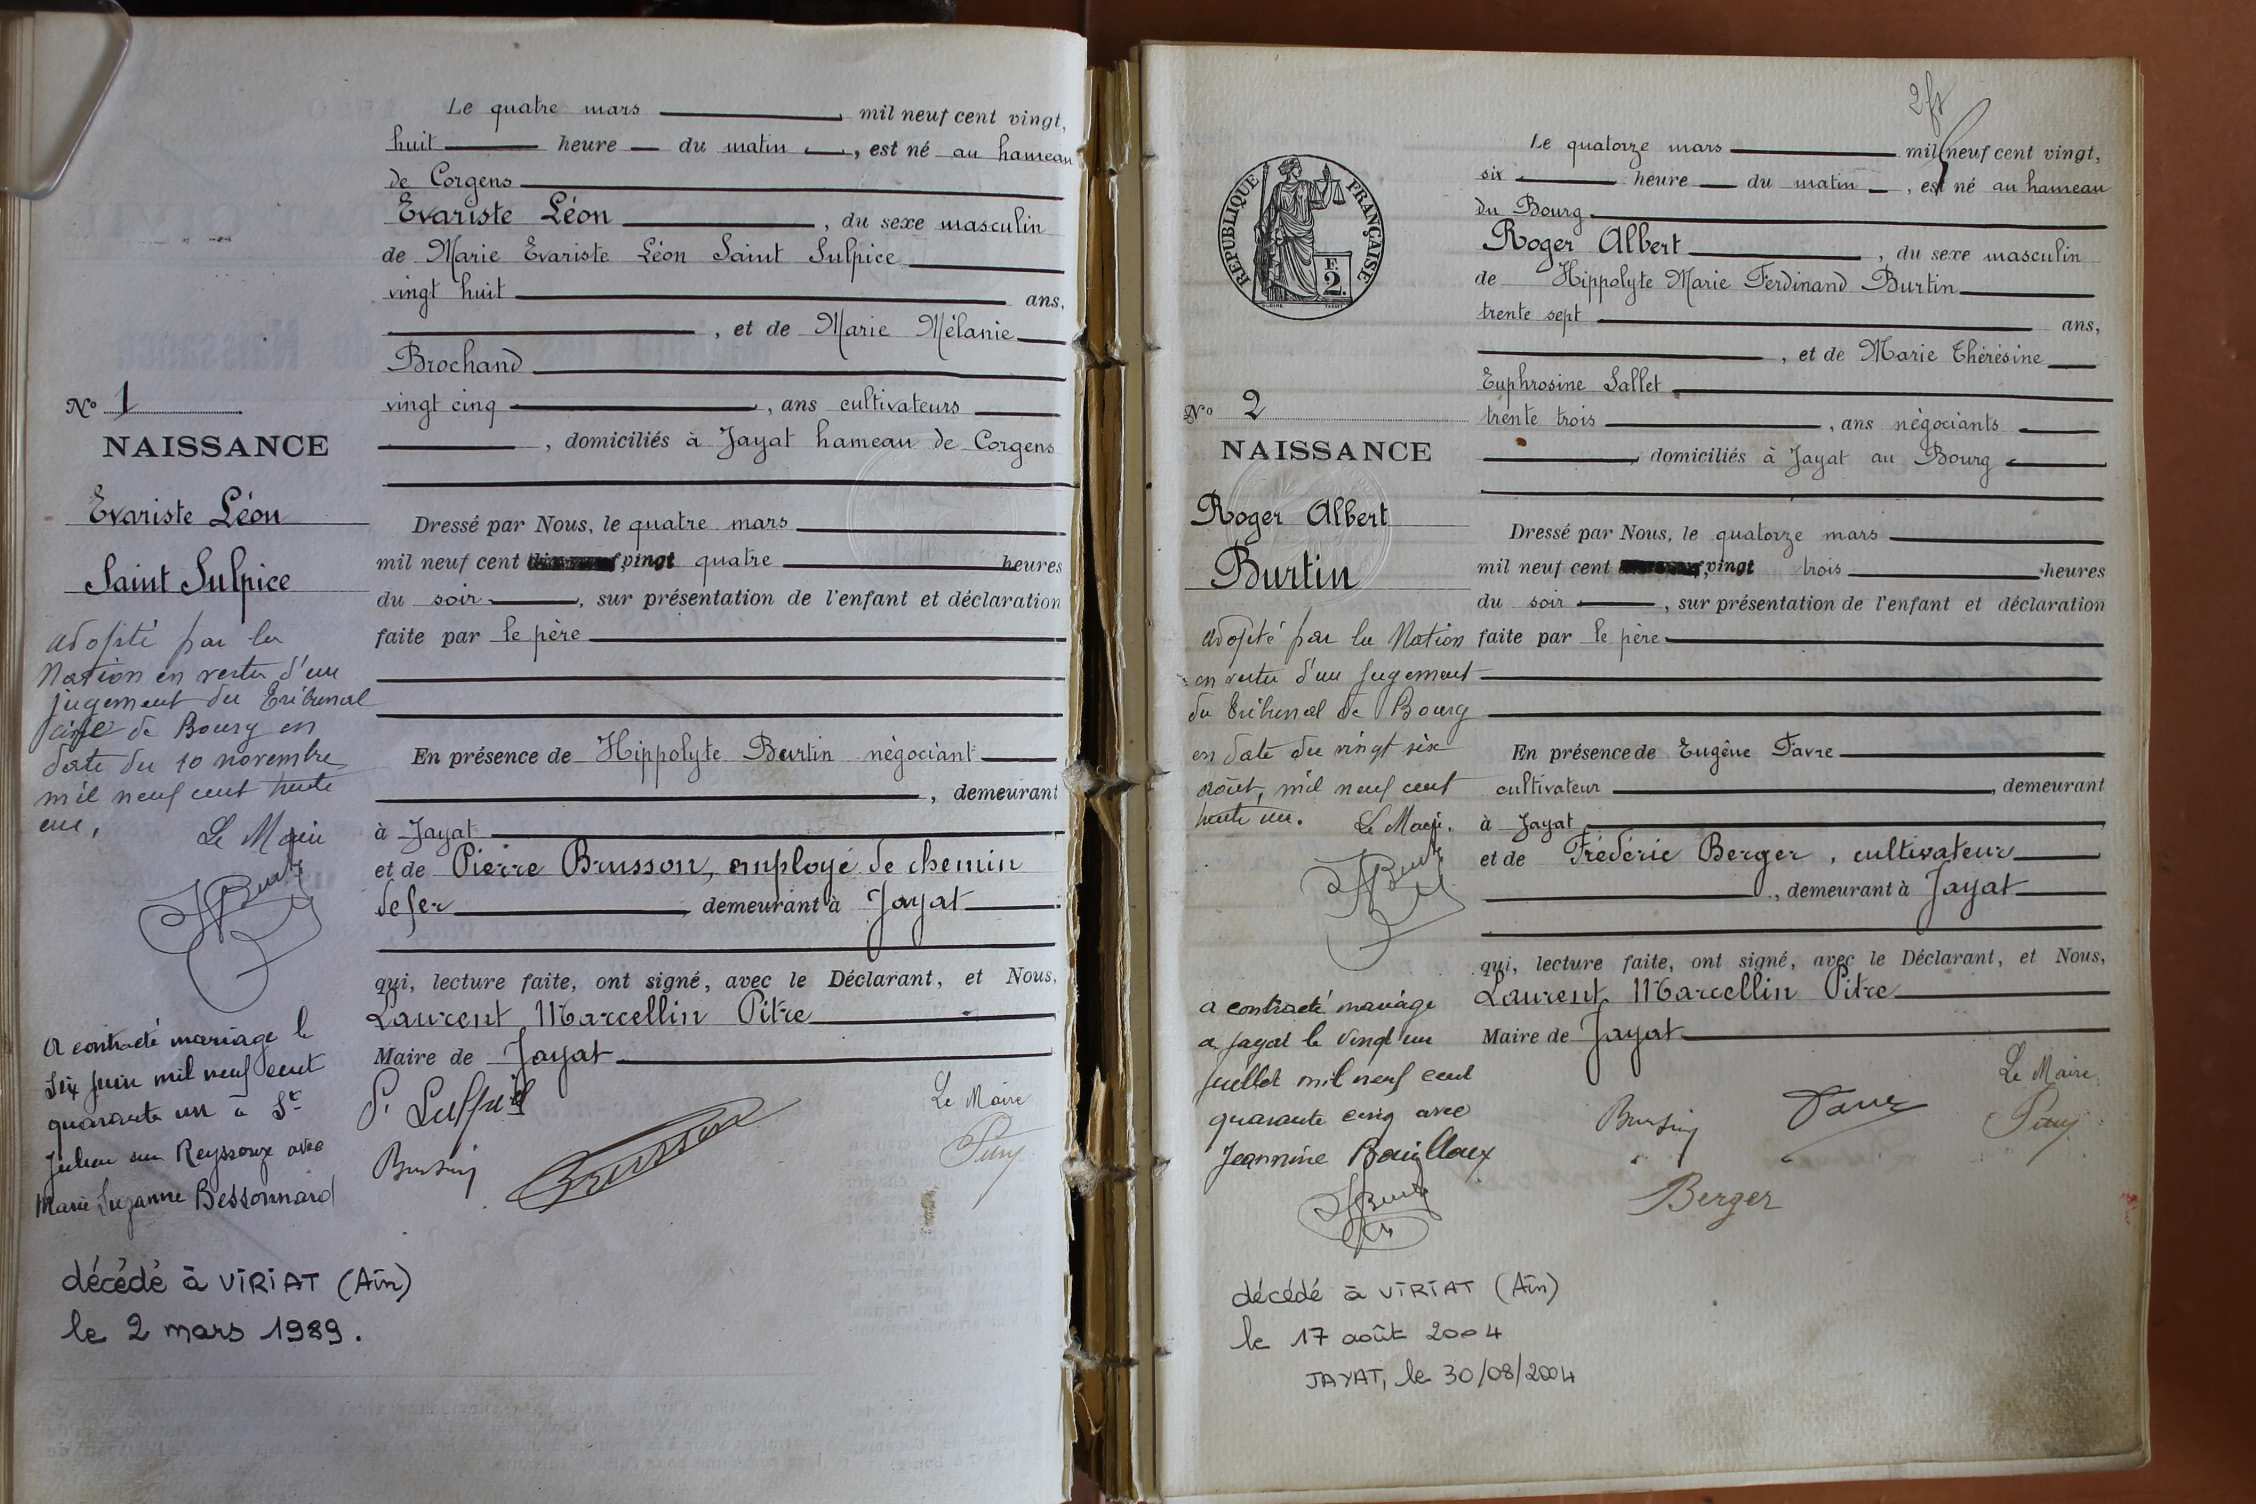 Le quatre mars mil neuf cent vingt,
huit heure du matin, est né au hameau
de Corgens
Evariste Léon, du sexe masculin
de Marie Evariste Léon Saint Sulpice
vingt huit ans,
, et de Marie Mélanie
Brochand
vingt cinq, ans cultivateurs
, domiciliés à Jayat hameau de Corgens
Dressé par Nous, le quatre mars
mil neuf cent vingt quatre heures
du soir, sur présentation de l'enfant et déclaration
faite par le père
En présence de Hippolyte Burtin négociant
, demeurant
à Jayat
et de Pierre Brusson, employé de chemin
de fer demeurant à Jayat
qui, lecture faite, ont signé, avec le Déclarant, et Nous,
Laurent Marcellin Pitre
Maire de Jayat
Le Maire
Brusson
No 1
NAISSANCE
Evariste Léon
Saint Sulpice
adopté par la
Nation en vertu d'un
jugement du Tribunal
civil de Bourg en
date du 10 novembre
mil neuf cent trente
un,
Le Maire
A contracté mariage le
six juin mil neuf cent
quarante un à St
Julien sur Reyssouze avec
Marie Suzanne Bessonnard
décédé à VIRIAT (Ain)
le 2 mars 1989.
2 ft
Le quatorze mars mil neuf cent vingt,
six heure du matin, est né au hameau
du Bourg
Roger Albert, du sexe masculin
de Hippolyte Marie Ferdinand Burtin
trente sept ans,
, et de Marie Thérésine
Euphrosine Sallet
trente trois, ans négociants
, domiciliés à Jayat au Bourg
Dressé par Nous, le quatorze mars
mil neuf cent vingt trois heures
du soir, sur présentation de l'enfant et déclaration
faite par le père
En présence de Eugène Favre
cultivateur, demeurant
à Jayat
et de Frédéric Berger, cultivateur
, demeurant à Jayat
qui, lecture faite, ont signé, avec le Déclarant, et Nous,
Laurent Marcellin Pitre
Maire de Jayat
Le Maire
Burtin
Favre
Berger
RÉPUBLIQUE FRANÇAISE
F.
2.
No 2
NAISSANCE
Roger Albert
Burtin
adopté par la Nation
en vertu d'un jugement
du Tribunal de Bourg
en date du vingt six
août, mil neuf cent
trente un.
Le Maire.
a contracté mariage
a Jayat le vingt un
juillet mil neuf cent
quarante cinq avec
Jeannine Bouilloux
décédé à VIRIAT (Ain)
le 17 août 2004
JAYAT, le 30/08/2004